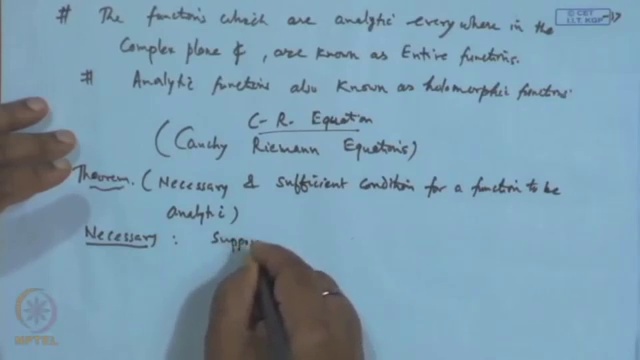 # The functions which are analytic everywhere in the
Complex plane ₵, are known as Entire functions.
# Analytic functions also known as holomorphic functions.
C-R. Equation
(Cauchy Riemann Equations)
Theorem. (Necessary & sufficient condition for a function to be
analytic)
Necessary : Supp
© CET
I.I.T. KGP
NPTEL